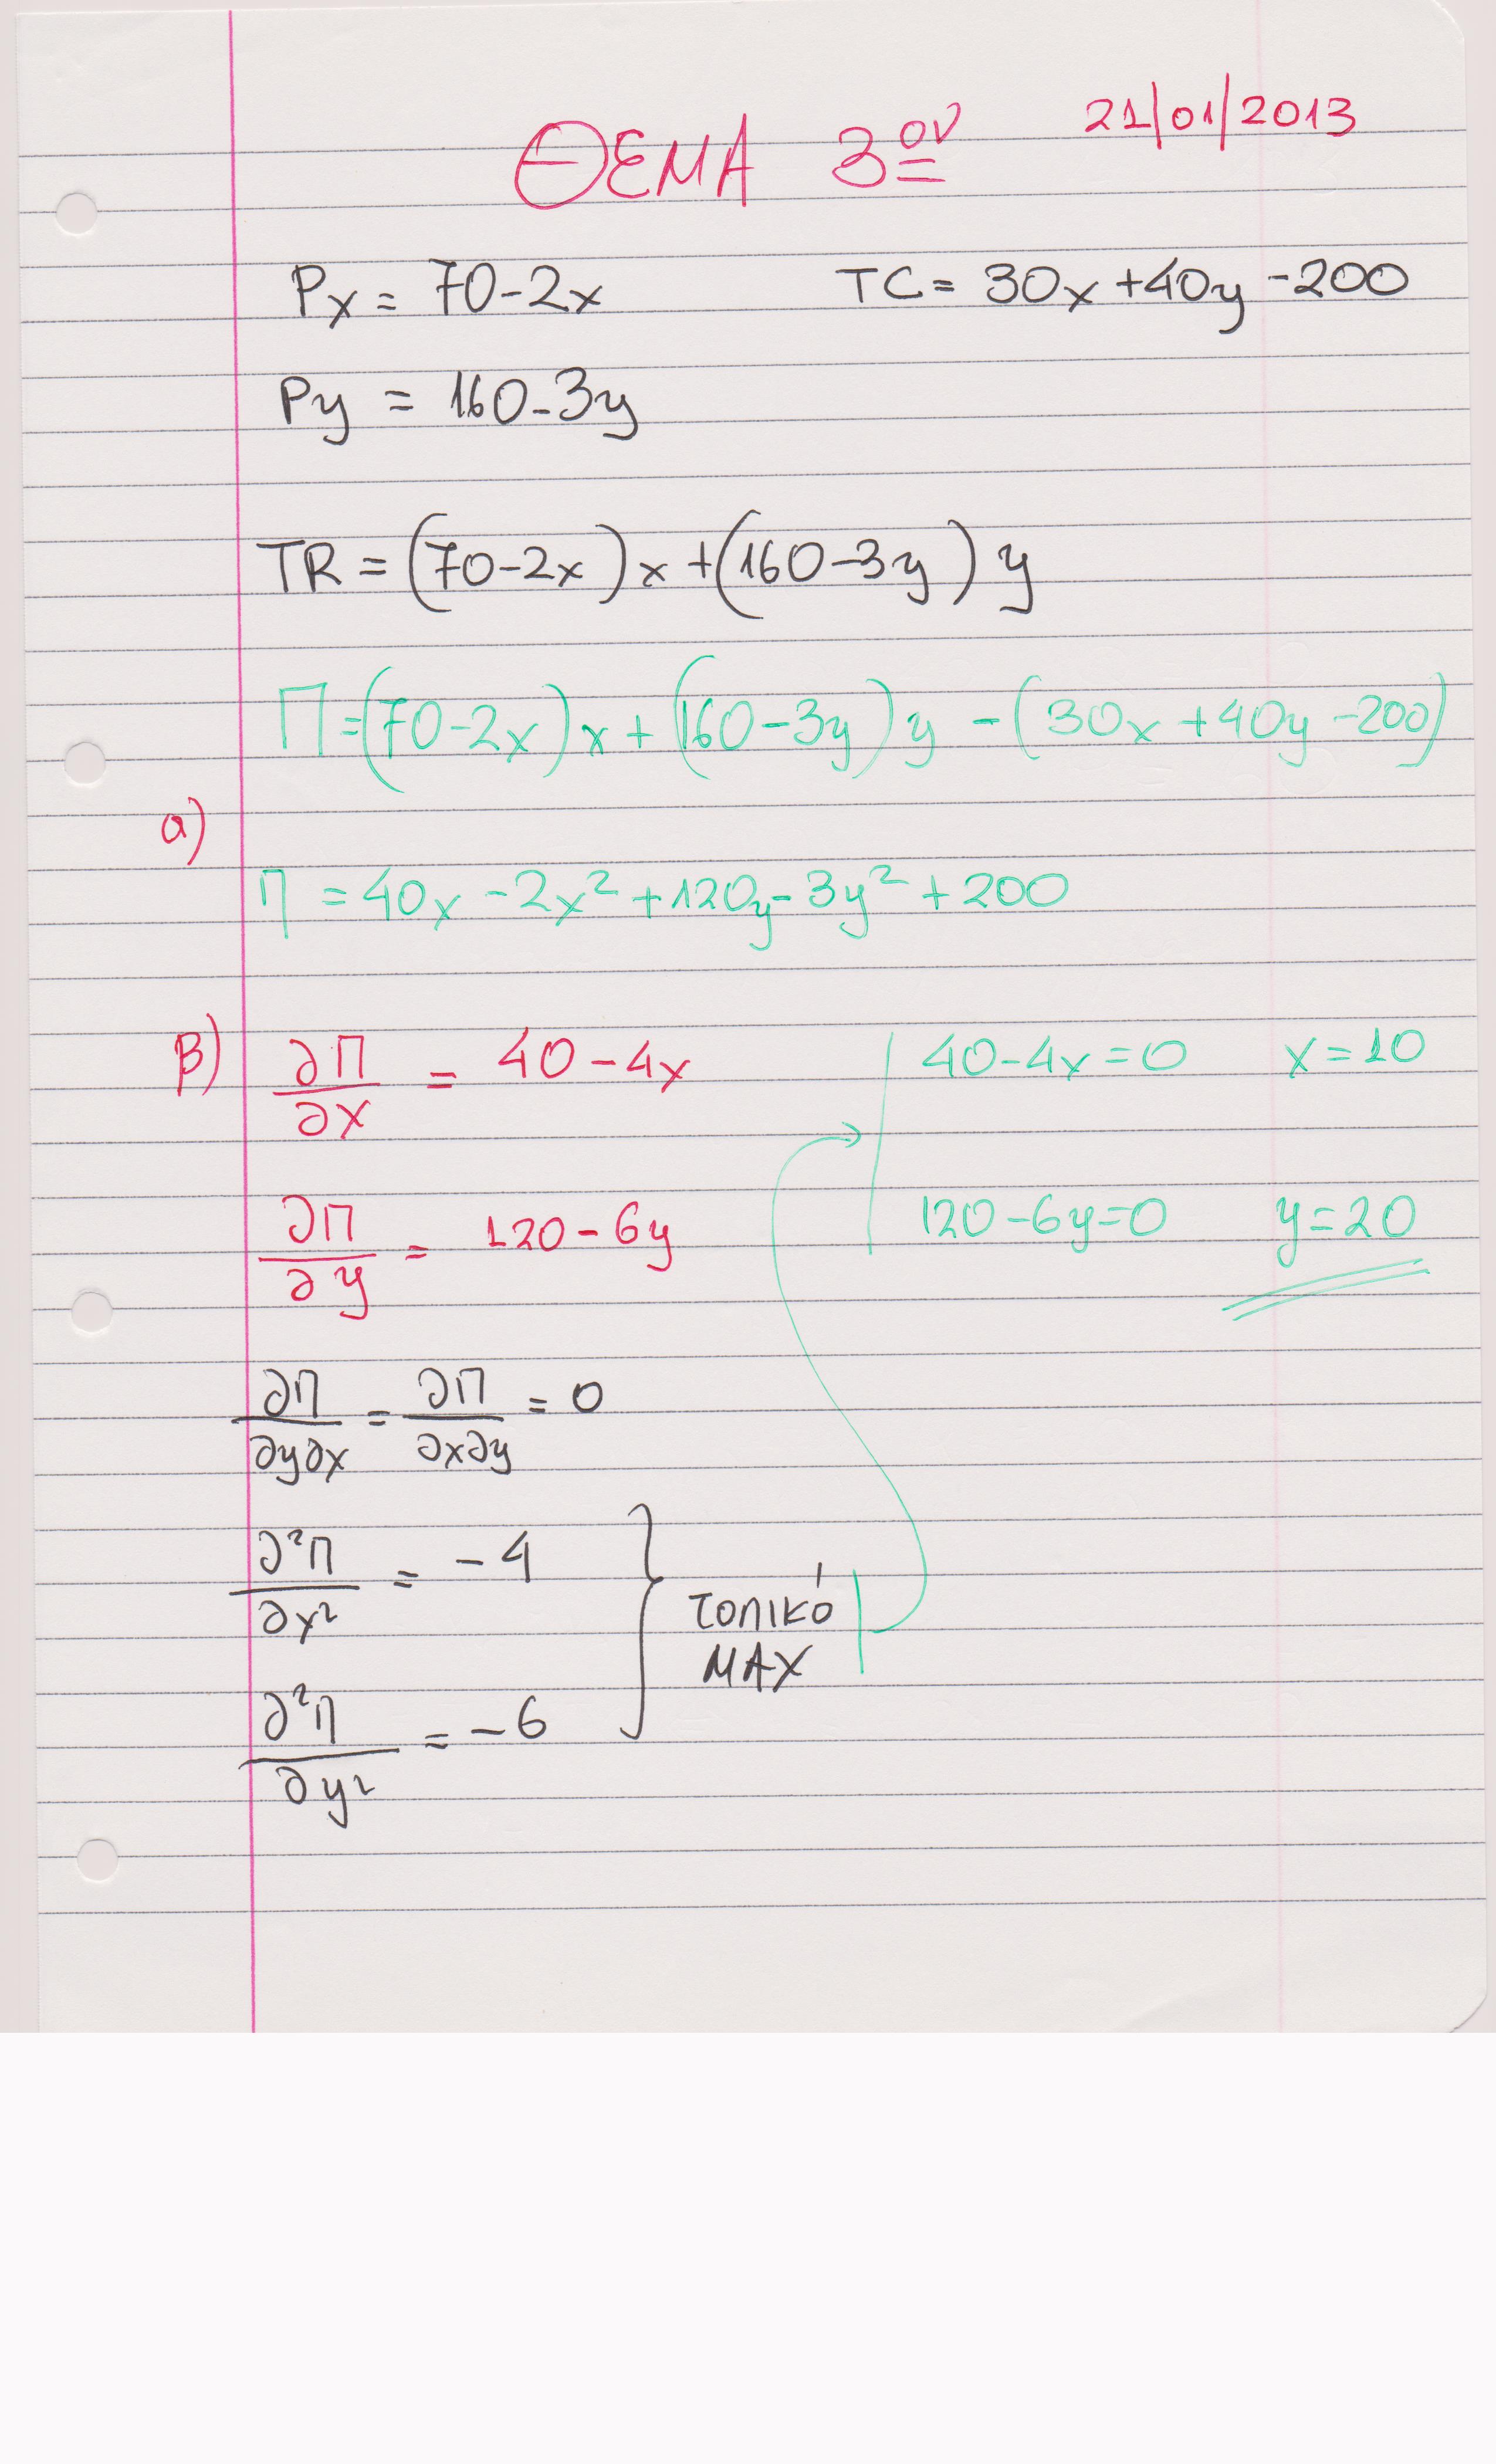 ΘΕΜΑ 3ον 21/01/2013
Px = 70-2x TC = 30x+40y-200
Py = 160-3y
TR = (70-2x)x+(160-3y)y
Π=(70-2x)x+(160-3y)y-(30x+40y-200)
α)
Π = 40x-2x²+120y-3y²+200
β) ∂Π/∂x = 40-4x 40-4x=0 x=10
∂Π/∂y = 120-6y 120-6y=0 y=20
∂Π/∂y∂x = ∂Π/∂x∂y = 0
∂²Π/∂x² = -4
τοπικό
MAX
∂²Π/∂y² = -6